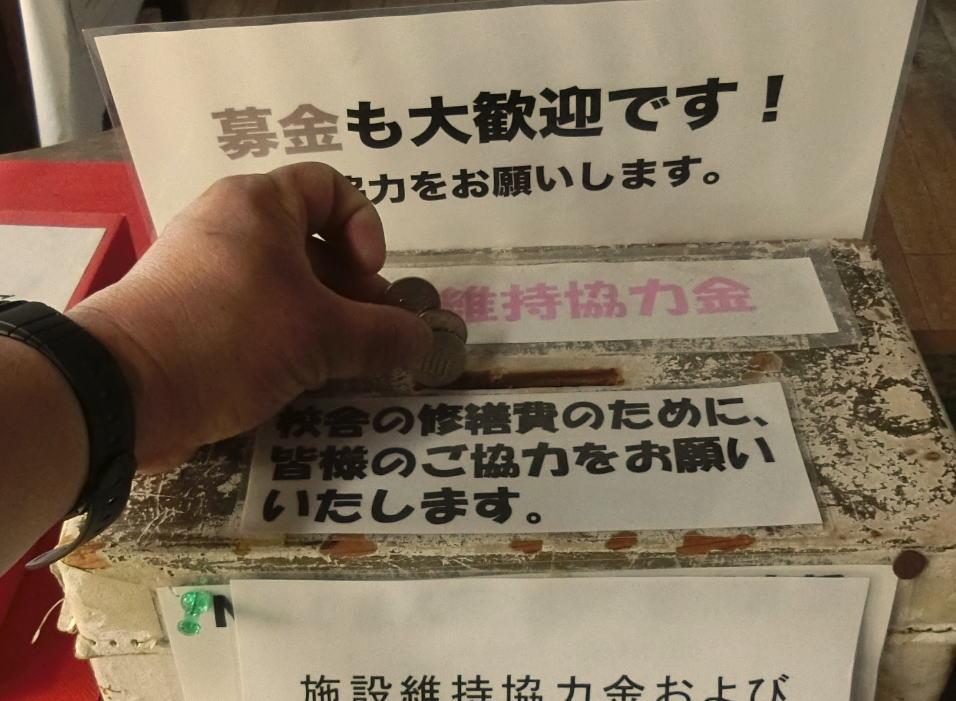 募金も大歓迎です!
協力をお願いします。
維持協力金
校舎の修繕費のために、
皆様のご協力をお願い
いたします。
施設維持協力金および